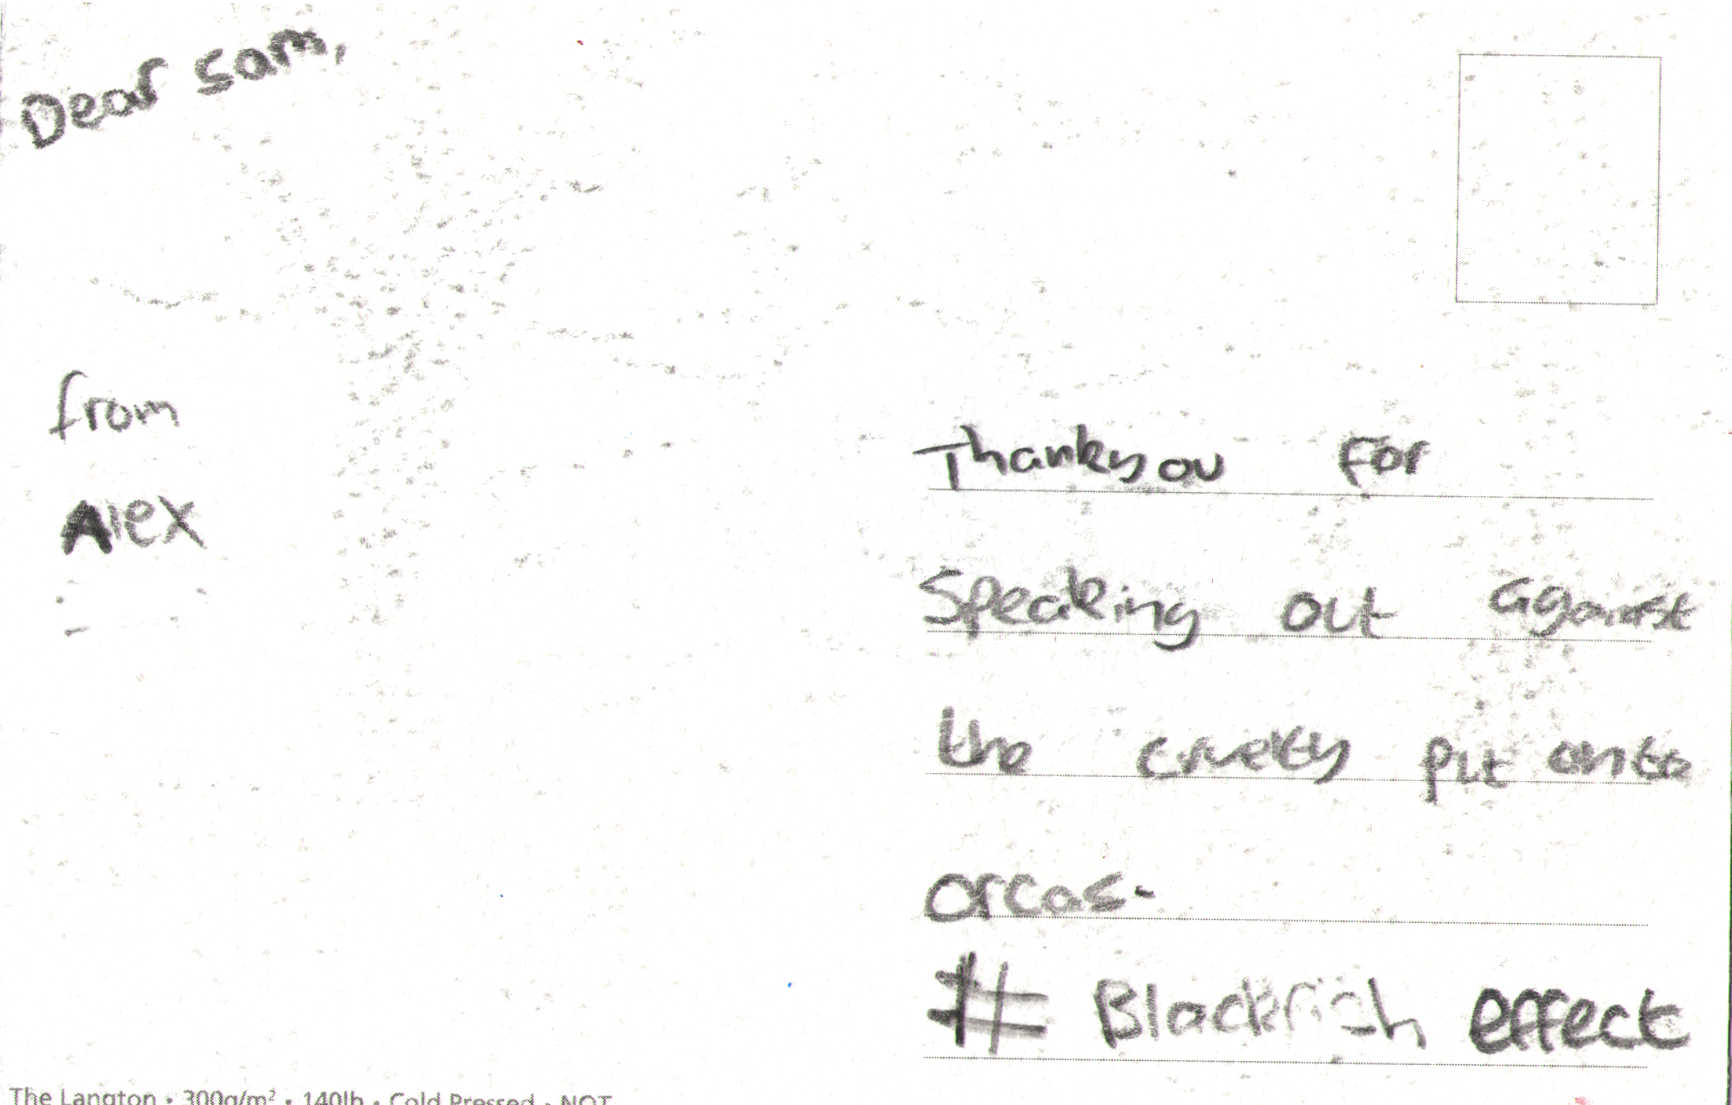 Dear Sam,
from
Alex
Thankyou for
Speaking out against
the cruelty put onto
orcas.
# Blackfish effect
The Langton • 300g/m² • 140lb • Cold Pressed • NOT